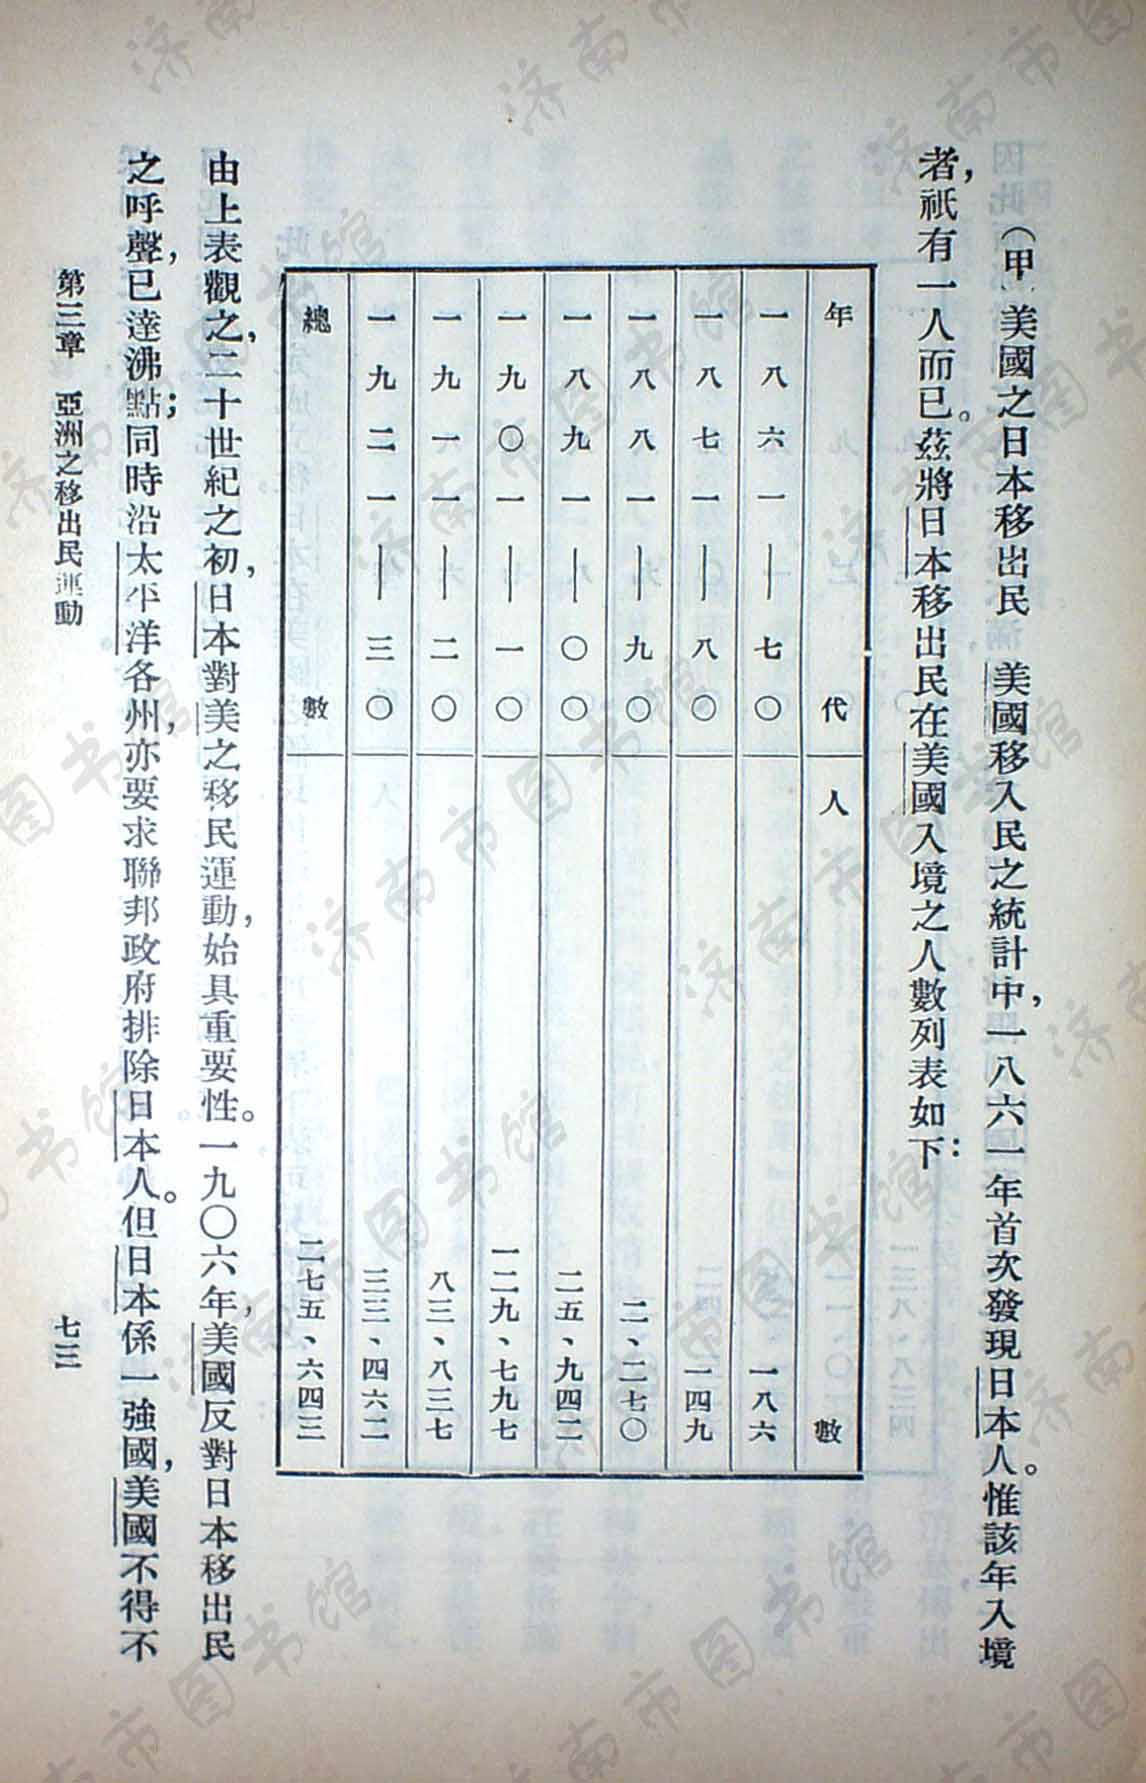 (甲)美國之日本移出民　美國移入民之統計中，一八六一年首次發現日本人。惟該年入境
者，祇有一人而已。茲將日本移出民在美國入境之人數列表如下：
年代　人數
一八六一—七〇　一八六
一八七一—八〇　一四九
一八八一—九〇　二、二七〇
一八九一—〇〇　二五、九四二
一九〇一—一〇　一二九、七九七
一九一一—二〇　八三、八三七
一九二一—三〇　三三、四六二
總數　二七五、六四三
由上表觀之，二十世紀之初，日本對美之移民運動，始具重要性。一九〇六年，美國反對日本移出民
之呼聲，已達沸點；同時沿太平洋各州，亦要求聯邦政府排除日本人。但日本係一強國，美國不得不
第三章　亞洲之移出民運動　七三
济南市图书馆